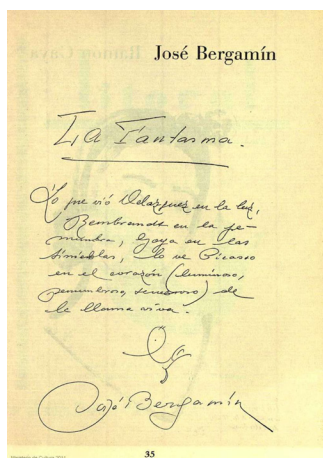 José Bergamín
La Fantasma.
Lo que vió Velazquez en la luz,
Rembrandt en la pe-
numbra, Goya en las
tinieblas, lo ve Picasso
en el corazón (luminoso,
penumbroso, tenebroso) de
la llama viva.
José Bergamín
35